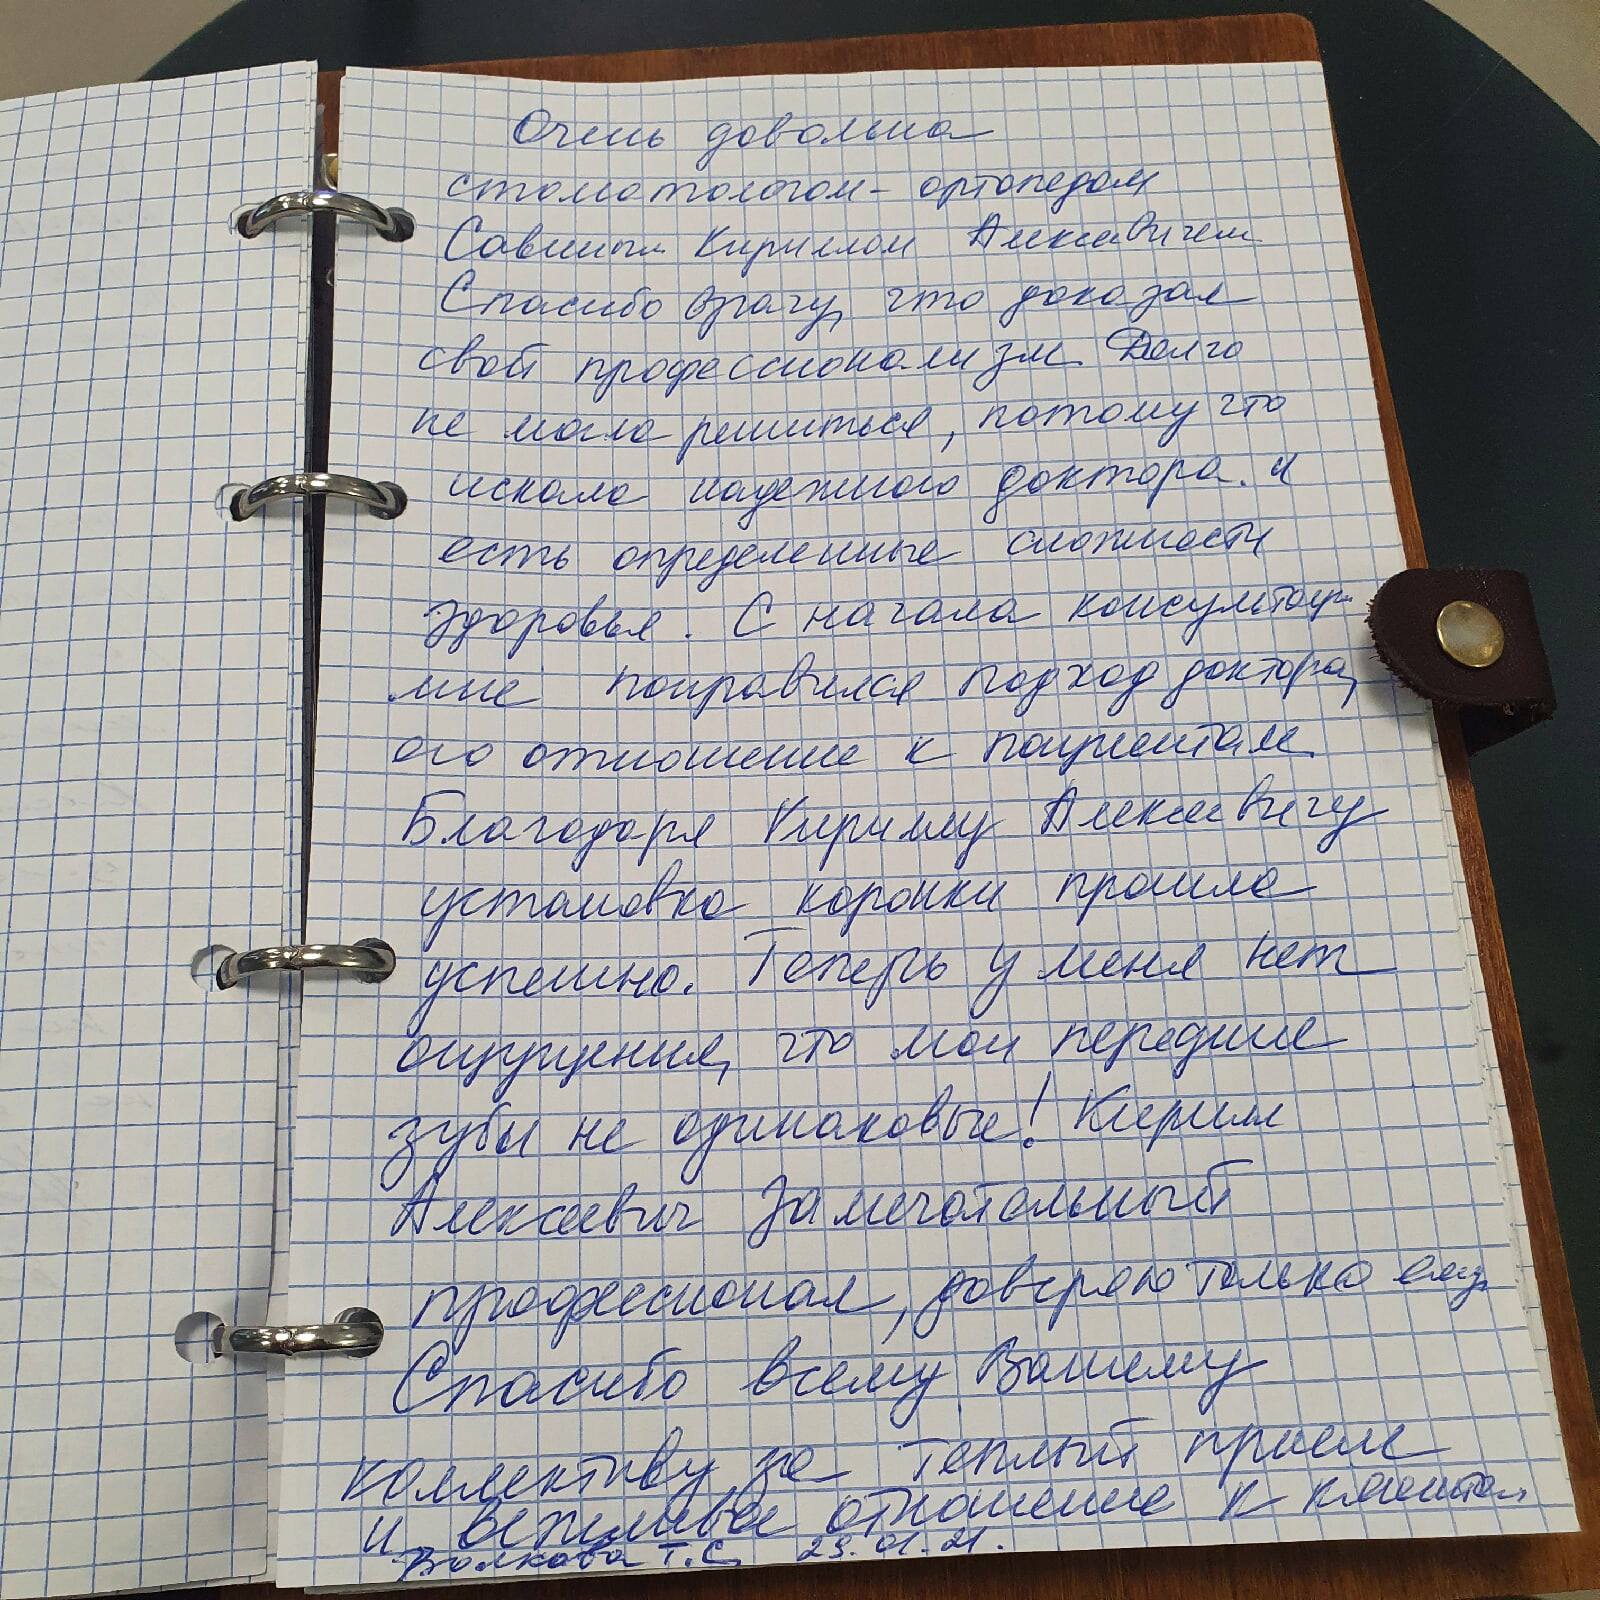 Очень довольна
стоматологом-ортопедом
Савиным Кириллом Алексеевичем
Спасибо врачу, что доказал
свой профессионализм. Долго
не могла решиться, потому что
искала надежного доктора. и
есть определенные сложности
здоровья. С начала консультации
мне понравился подход доктора,
его отношение к пациентам.
Благодаря Кириллу Алексеевичу
установка коронки прошла
успешно. Теперь у меня нет
ощущения, что мои передние
зубы не одинаковые! Кирилл
Алексеевич замечательный
профессионал, доверяю только ему.
Спасибо всему Вашему
коллективу за теплый прием
и вежливое отношение к клиентам
Волкова Т.С. 23.01.21.